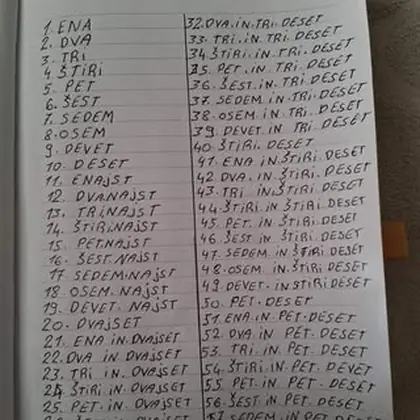 1. ENA
2. DVA
3. TRi
4. ŠTiRi
5. PET
6. ŠEST
7. SEDEM
8. OSEM
9. DEVET
10. DESET
11. ENAJST
12. DVANAJST
13. TRiNAJST
14. ŠTiRiNAJST
15. PET.NAJST
16. ŠEST.NAJST
17 SEDEM.NAJST
18 OSEM.NAJST
19. DEVET.NAJST
20. DVAJSET
21. ENA iN.DVAJSET
22. DVA iN DVAJSET
23. TRi iN DVAJSET
24. ŠTiRi iN DVAJSET
25. PET iN. DVAJSET
32. DVA.iN.TRi.DESET
33. TRi.iN.TRi DESET
34 ŠTiRi iN TRi.DESET
35. PET.iN.TRi DESET
36. ŠEST.iN.TRi DESET
37. SEDEM iN.TRi.DESET
38. OSEM iN.TRi DESET
39. DEVET iN TRi DESET
40 ŠTiRi. DESET
41. ENA iN ŠTiRi.DESET
42. DVA.iN ŠTiRi.DESET
43. TRi iN ŠTiRi.DESET
44. ŠTiRi.iN ŠTiRi.DESET
45. PET.iN ŠTiRi.DESET
46. ŠEST iN ŠTiRi.DESET
47. SEDEM iN ŠTiRi DESET
48. OSEM.iN ŠTiRi DESET
49. DEVET.iN STiRi DESET
50. PET.DESET
51. ENA iN PET.DESET
52. DVA.iN PET.DESET
53. TRi.iN PET.DESET
54. ŠTiRi iN PET.DESET
55. PET.iN PET.DESET
56. ŠEST iN PET.DESET
57. SEDEM iN PET.DESET